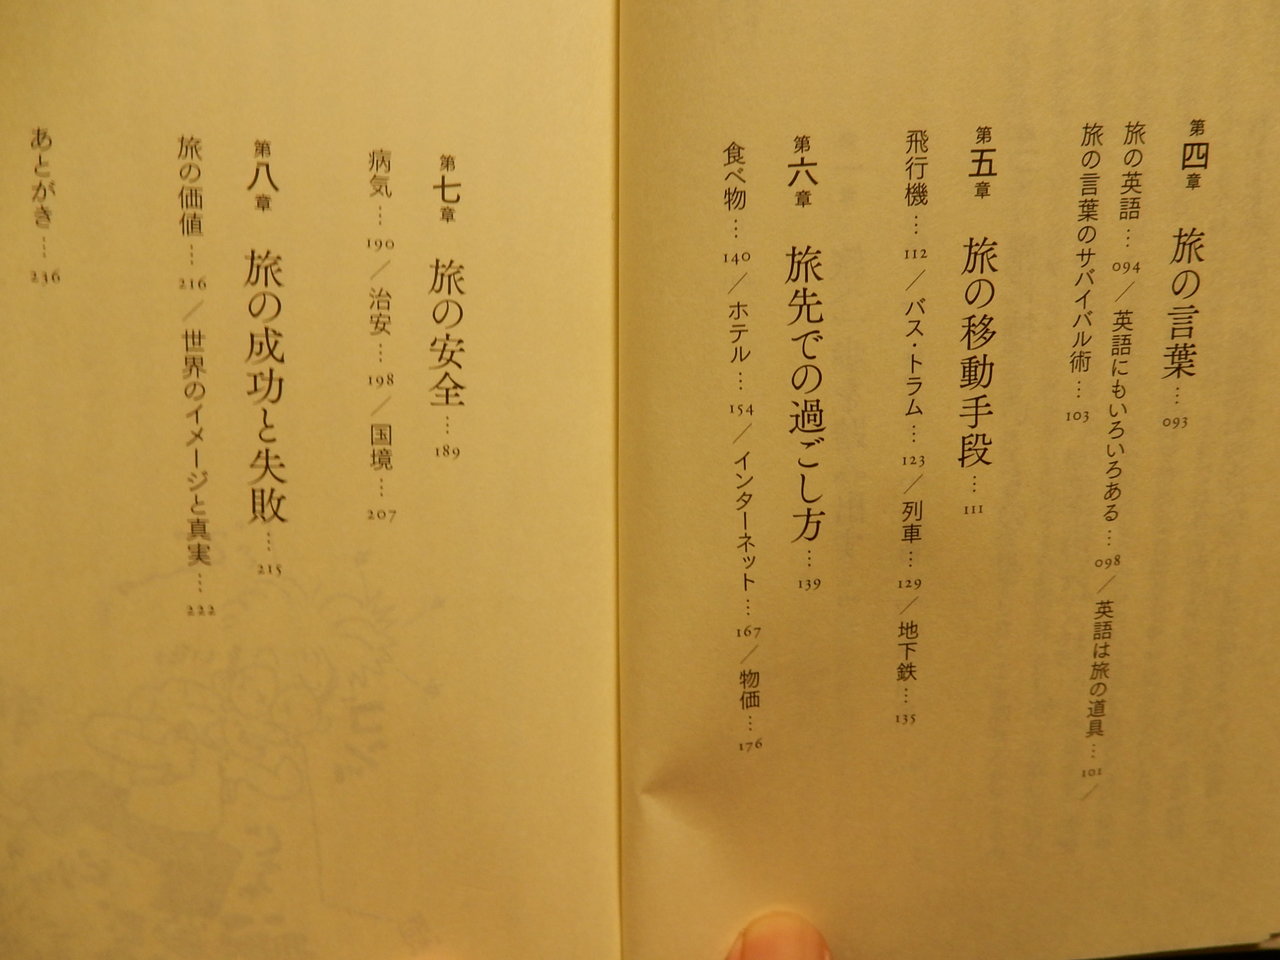 第四章 旅の言葉…093
旅の英語…094／英語にもいろいろある…098／英語は旅の道具…101／
旅の言葉のサバイバル術…103
第五章 旅の移動手段…111
飛行機…112／バス・トラム…123／列車…129／地下鉄…135
第六章 旅先での過ごし方…139
食べ物…140／ホテル…154／インターネット…167／物価…176
第七章 旅の安全…189
病気…190／治安…198／国境…207
第八章 旅の成功と失敗…215
旅の価値…216／世界のイメージと真実…222
あとがき…236